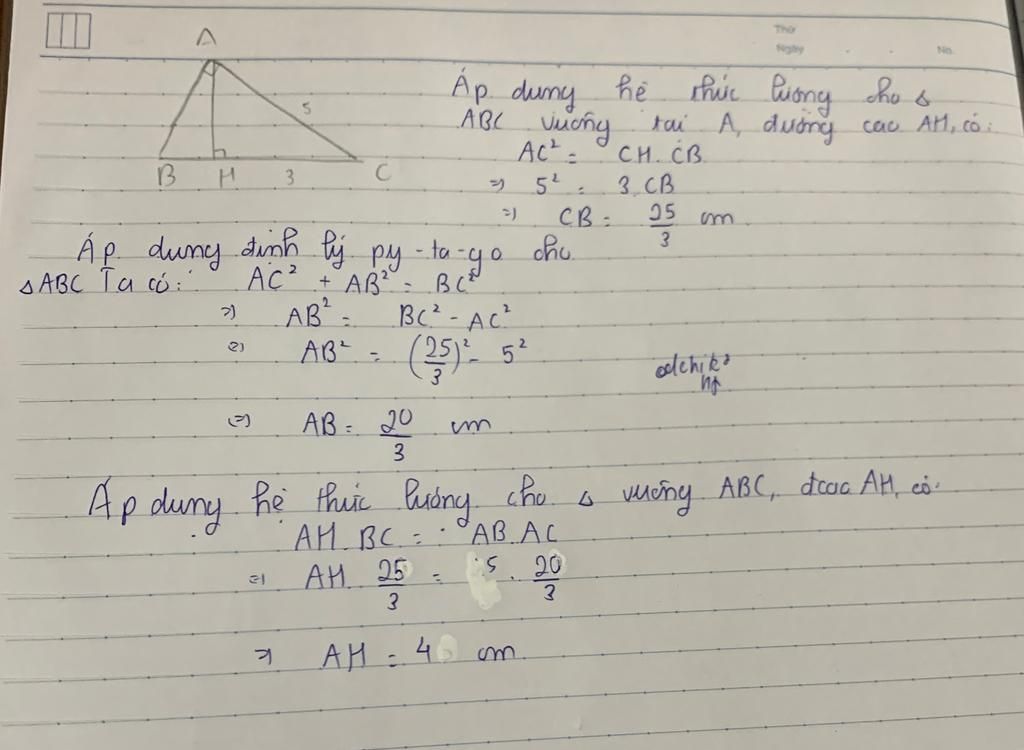 Thứ
Ngày . . No.
A
5
B H 3 C
Áp dụng hệ thức lượng cho Δ
ABC vuông tại A, đường cao AH, có:
AC² = CH. CB
=> 5² = 3. CB
=> CB = 25/3 cm
Áp dụng định lý py-ta-go cho
Δ ABC Ta có: AC² + AB² = BC²
=> AB² = BC² - AC²
=> AB² = (25/3)² - 5²
=> AB = 20/3 cm
Áp dụng hệ thức lượng cho Δ vuông ABC, đcao AH, có:
AH. BC = AB. AC
=> AH. 25/3 = 5 . 20/3
=> AH = 4 cm